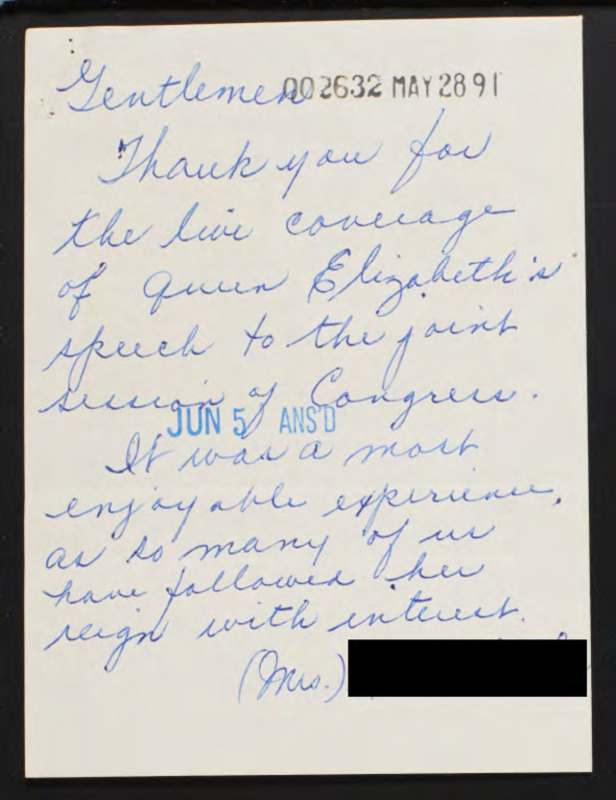 Gentlemen 002632 MAY 28 91
Thank you for
the live coverage
of Queen Elizabeth's
speech to the joint
session of Congress.
JUN 5 ANS'D
It was a most
enjoyable experience,
as so many of us
have followed her
reign with interest.
(Mrs.)